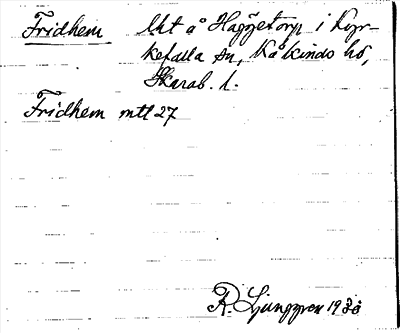 Fridhem lht å Haggetorp i Kyr-
kefalla sn, Kåkinds hd,
Skarab. l.
Fridhem mtl 27
R. Ljunggren 1930